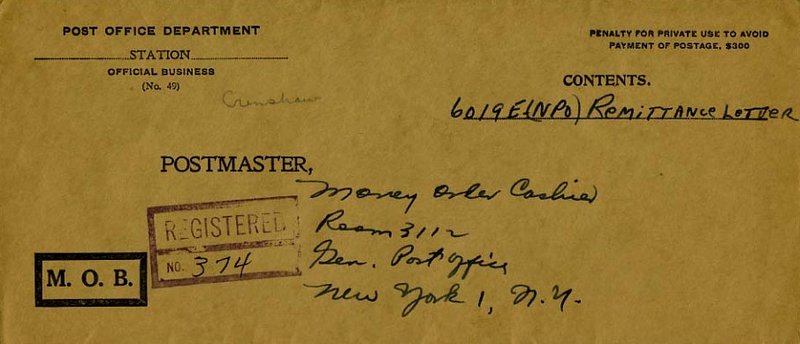 POST OFFICE DEPARTMENT
STATION
OFFICIAL BUSINESS
(No. 49)
Crenshaw
PENALTY FOR PRIVATE USE TO AVOID
PAYMENT OF POSTAGE, $300
CONTENTS.
6019E(NPO) Remittance Letter
POSTMASTER,
Money Order Cashier
Room 3112
Gen. Post Office
New York 1, N.Y.
REGISTERED
NO. 374
M. O. B.